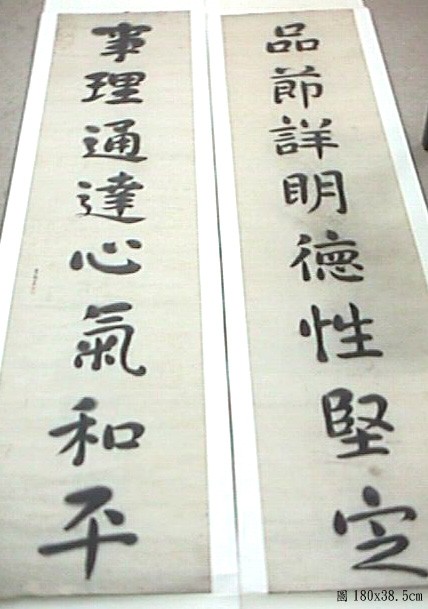 品節詳明德性堅定
事理通達心氣和平
圖 180x38.5cm